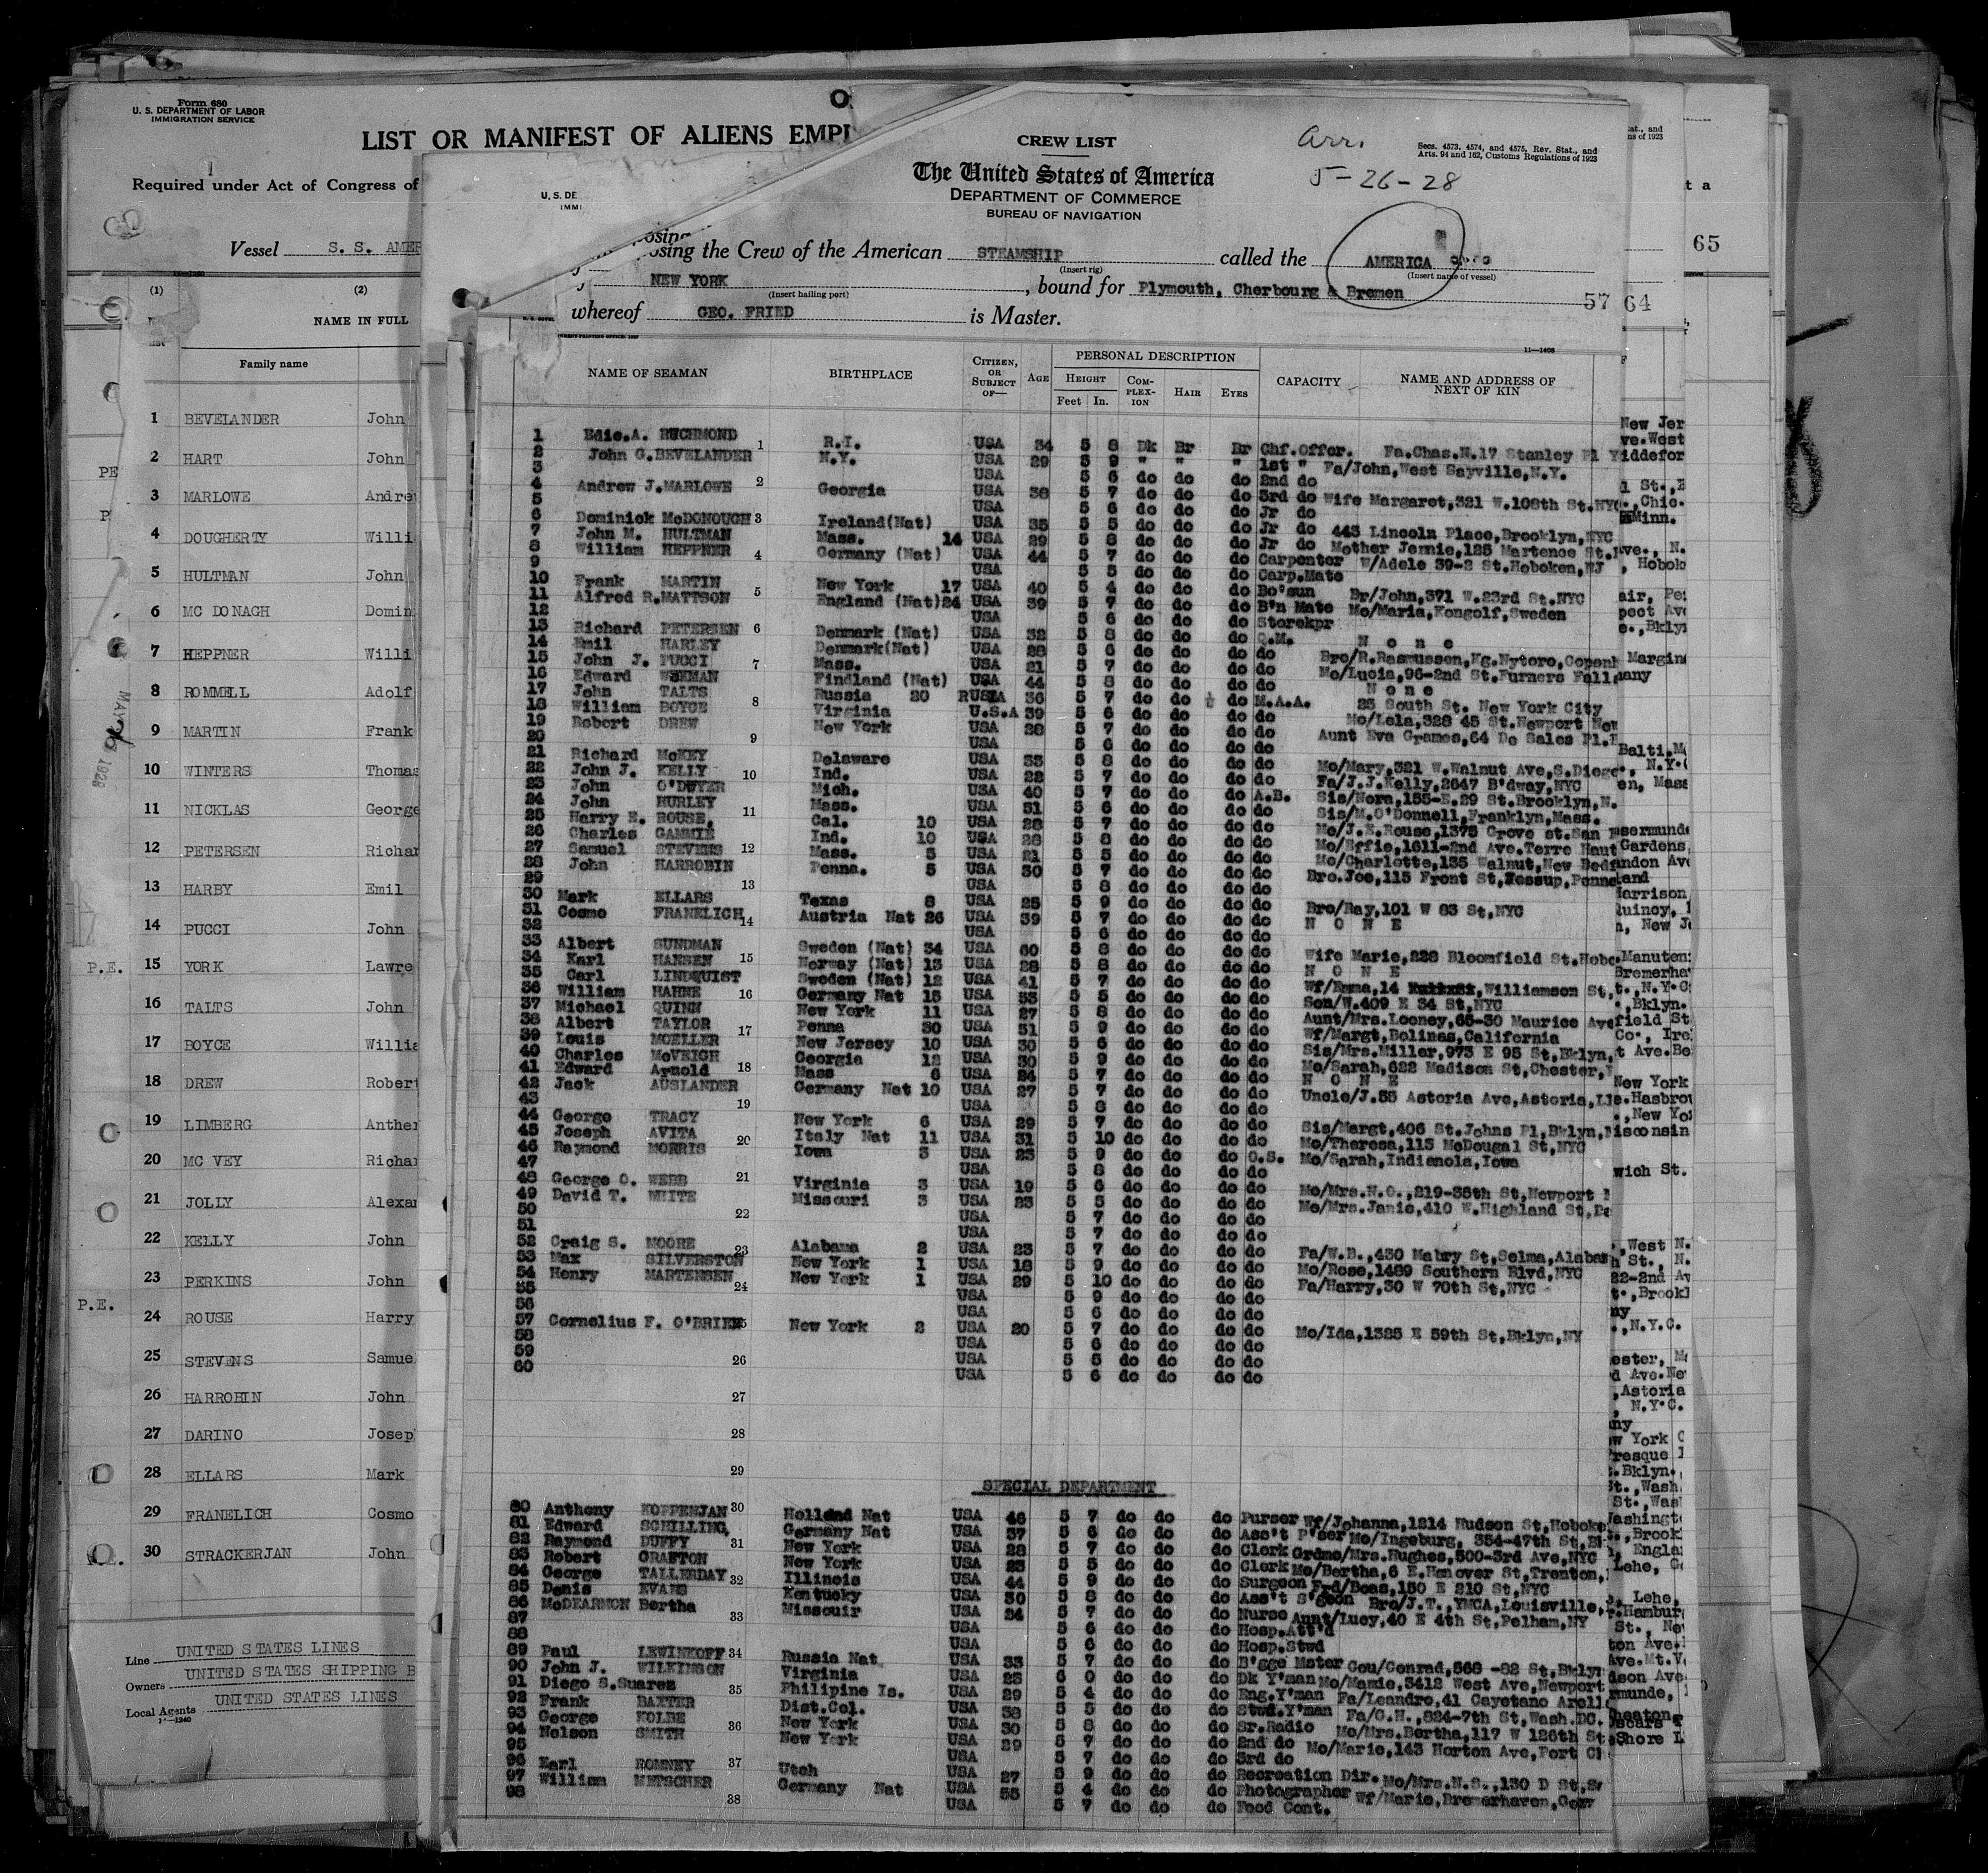 Form 680
U. S. DEPARTMENT OF LABOR
IMMIGRATION SERVICE
LIST OR MANIFEST OF ALIENS EMPL
Required under Act of Congress of
Vessel S. S. AMER
(1) (2)
NAME IN FULL
Family name
1 BEVELANDER John
2 HART John
3 MARLOWE Andre
4 DOUGHERTY Willi
5 HULTMAN John
6 MC DONAGH Domin
7 HEPPNER Willi
8 ROMMELL Adolf
9 MARTIN Frank
10 WINTERS Thomas
11 NICKLAS George
12 PETERSEN Richar
13 HARBY Emil
14 PUCCI John
P.E. 15 YORK Lawre
16 TALTS John
17 BOYCE Willia
18 DREW Robert
19 LIMBERG Anther
20 MC VEY Richar
21 JOLLY Alexan
22 KELLY John
23 PERKINS John
P.E.
24 ROUSE Harry
25 STEVENS Samue
26 HARROHIN John
27 DARINO Josep
28 ELLARS Mark
29 FRANELICH Cosmo
30 STRACKERJAN John
Line UNITED STATES LINES
Owners UNITED STATES SHIPPING B
Local Agents UNITED STATES LINES
CREW LIST
Arr.
5-26-28
Secs. 4573, 4574, and 4575, Rev. Stat., and
Arts. 94 and 162, Customs Regulations of 1923
The United States of America
DEPARTMENT OF COMMERCE
BUREAU OF NAVIGATION
osing the Crew of the American STEAMSHIP called the AMERICA
(Insert rig) (Insert name of vessel)
NEW YORK, bound for Plymouth, Cherbourg & Bremen
(Insert hailing port)
whereof GEO. FRIED is Master.
57 64
65
11—1408
NAME OF SEAMAN BIRTHPLACE CITIZEN, OR SUBJECT OF— AGE PERSONAL DESCRIPTION CAPACITY NAME AND ADDRESS OF NEXT OF KIN
HEIGHT COMPLEXION HAIR EYES
Feet In.
1 Edie.A. RICHMOND R.I. USA 34 5 8 Dk Br Br Chf.Offcr. Fa.Chas.N.17 Stanley Pl Y
2 John G.BEVELANDER N.Y. USA 29 5 9 " " " 1st " Fa/John,West Sayville,N.Y.
3 USA 5 6 do do do 2nd do
4 Andrew J.MARLOWE Georgia USA 38 5 7 do do do 3rd do Wife Margaret,321 W.108th St.NYC
5 USA 5 6 do do do Jr do
6 Dominick McDONOUGH Ireland(Nat) USA 35 5 5 do do do Jr do 443 Lincoln Place,Brooklyn,NYC
7 John M. HULTMAN Mass. 14 USA 29 5 8 do do do Jr do Mother Jennie,125 Martence St.
8 William HEPPNER Germany (Nat) USA 44 5 7 do do do Carpenter W/Adele 39-2 St.Hoboken,NJ
9 USA 5 5 do do do Carp.Mate
10 Frank MARTIN New York 17 USA 40 5 4 do do do Bo'sun Br/John,371 W.23rd St.NYC
11 Alfred R.MATTSON England (Nat)24 USA 39 5 7 do do do B'n Mate Mo/Maria,Kongolf,Sweden
12 USA 5 6 do do do Storekpr
13 Richard PETERSEN Denmark (Nat) USA 32 5 8 do do do Q.M. N o n e
14 Emil HARLEY Denmark(Nat) USA 28 5 6 do do do do Bro/R.Rasmussen,Kg.Nytoro,Copenh
15 John J. PUCCI Mass. USA 21 5 7 do do do do Mo/Lucia,96-2nd St.Furners Fall
16 Edward Findland (Nat) USA 44 5 8 do do do do N o n e
17 John TALTS Russia 20 RUSIA 36 5 7 do do do M.A.A. 25 South St. New York City
18 William BOYCE Virginia U.S.A 39 5 6 do do do do Mo/Lela,328 45 St.Newport New
19 Robert DREW New York USA 28 5 7 do do do do Aunt Eva Grames,64 De Sales Pl.
20 USA 5 6 do do do do
21 Richard McKEY Delaware USA 33 5 8 do do do do Mo/Mary,321 W.Walnut Ave,S.Diego
22 John J. KELLY Ind. USA 22 5 7 do do do do Fa/J.J.Kelly,2647 B'dway,NYC
23 John O'DWYER Mich. USA 40 5 7 do do do A.B. Sis/Nora,155-E.29 St.Brooklyn,N.
24 John HURLEY Mass. USA 51 5 6 do do do do Sis/M.O'Donnell,Franklyn,Mass.
25 Harry E. ROUSE, Cal. 10 USA 28 5 7 do do do do Mo/J.E.Rouse,1375 Grove st.San
26 Charles GAMMIE Ind. 10 USA 28 5 8 do do do do Mo/Effie,1611-2nd Ave.Terre Haut
27 Samuel STEVENS Mass. 5 USA 21 5 5 do do do do Mo/Charlotte,135 Walnut,New Bed
28 John HARROBIN Penna. 5 USA 30 5 7 do do do do Bro.Joe,115 Front St,Jessup,Penna
29 USA 5 8 do do do do
30 Mark ELLARS Texas 8 USA 25 5 9 do do do do Bro/Ray,101 W 83 St,NYC
31 Cosmo FRANELICH Austria Nat 26 USA 39 5 7 do do do do N O N E
32 USA 5 6 do do do do
33 Albert SUNDMAN Sweden (Nat) 34 USA 60 5 8 do do do do Wife Marie,228 Bloomfield St.Hobo
34 Karl HANSEN Norway (Nat) 13 USA 28 5 8 do do do do N O N E
35 Carl LINDQUIST Sweden (Nat) 12 USA 41 5 7 do do do do Wf/Emma,14 Williamson St,
36 William HAHNE Germany Nat 15 USA 53 5 5 do do do do Son/W.409 E 34 St,NYC
37 Michael QUINN New York 11 USA 27 5 8 do do do do Aunt/Mrs.Looney,65-30 Maurice Ave
38 Albert TAYLOR Penna 30 USA 51 5 9 do do do do Wf/Margt,Bolinas,California
39 Louis MOELLER New Jersey 10 USA 30 5 6 do do do do Sis/Mrs.Miller,973 E 95 St,Bklyn,
40 Charles McVEIGH Georgia 12 USA 30 5 9 do do do do Mo/Sarah,622 Madison St,Chester,
41 Edward Arnold Mass 6 USA 24 5 7 do do do do N O N E
42 Jack AUSLANDER Germany Nat 10 USA 27 5 7 do do do do Uncle/J.55 Astoria Ave,Astoria,LI
43 USA 5 8 do do do do
44 George TRACY New York 6 USA 29 5 7 do do do do Sis/Margt,406 St.Johns Pl,Bklyn,
45 Joseph AVITA Italy Nat 11 USA 31 5 10 do do do do Mo/Theresa,115 McDougal St,NYC
46 Raymond MORRIS Iowa 3 USA 23 5 9 do do do O.S. Mo/Sarah,Indianola,Iowa
47 USA 5 8 do do do do
48 George O. WEBB Virginia 3 USA 19 5 6 do do do do Mo/Mrs.N.O.,219-35th St,Newport
49 David T. WHITE Missouri 3 USA 23 5 5 do do do do Mo/Mrs.Janie,410 W.Highland St,De
50 USA 5 7 do do do do
51 USA 5 7 do do do do
52 Craig S. MOORE Alabama 2 USA 23 5 7 do do do do Fa/W.B.,430 Mabry St,Selma,Alabam
53 Max SILVERSTON New York 1 USA 18 5 9 do do do do Mo/Rose,1489 Southern Blvd,NYC
54 Henry MARTENSEN New York 1 USA 29 5 10 do do do do Fa/Harry,30 W 70th St,NYC
55 USA 5 9 do do do do
56 USA 5 6 do do do do
57 Cornelius F. O'BRIEN New York 2 USA 20 5 7 do do do do Mo/Ida,1325 E 59th St,Bklyn,NY
58 USA 5 6 do do do do
59 USA 5 5 do do do do
60 USA 5 6 do do do do
SPECIAL DEPARTMENT
80 Anthony KOPPENJAN Holland Nat USA 46 5 7 do do do Purser Wf/Johanna,1214 Hudson St,Hoboke
81 Edward SCHILLING, Germany Nat USA 37 5 6 do do do Ass't P'ser Mo/Ingeburg, 354-47th St,B
82 Raymond DUFFY New York USA 28 5 7 do do do Clerk Grdmo/Mrs.Hughes,500-3rd Ave,NYC
83 Robert GRAFTON New York USA 23 5 5 do do do Clerk Mo/Bertha,6 E.Hanover St,Trenton,
84 George TALLERDAY Illinois USA 44 5 9 do do do Surgeon Frd/Boas,150 E 210 St,NYC
85 Denis EVANS Kentucky USA 30 5 8 do do do Ass't S'geon Bro/J.T.,YMCA,Louisville,
86 McDEARMON Bertha Missouir USA 34 5 7 do do do Nurse Aunt/Lucy,40 E 4th St,Pelham,NY
87 USA 5 6 do do do Hosp.Att'd
88 USA 5 6 do do do Hosp.Stwd
89 Paul LEWINKOFF Russia Nat USA 33 5 7 do do do B'gge Mster Cou/Conrad,568 -82 St,Bklyn
90 John J. WILKINSON Virginia USA 25 6 0 do do do Dk Y'man Mo/Mamie,3412 West Ave,Newport
91 Diego S.Suarez Philipine Is. USA 29 5 4 do do do Eng.Y'man Fa/Leandro,41 Cayetano Arell
92 Frank BAXTER Dist.Col. USA 38 5 5 do do do Stwd.Y'man Fa/C.H.,824-7th St,Wash.DC.
93 George KOLBE New York USA 30 5 8 do do do Sr.Radio Mo/Mrs.Bertha,117 W 126th St.
94 Nelson SMITH New York USA 29 5 7 do do do 2nd do Mo/Marie,143 Horton Ave,Port Ch
95 USA 5 7 do do do 3rd do
96 Earl ROMNEY Utah USA 27 5 9 do do do Recreation Dir. Mo/Mrs.N.S.,130 D St,S
97 William METSCHER Germany Nat USA 55 5 4 do do do Photographer Wf/Marie,Bremerhaven,Germ
98 USA 5 7 do do do Food Cont.